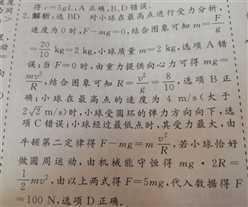 得：r=5gL,A正确,B、D错误。
2.解析:选BD 对小球在最高点进行受力分析,
速度为0时,F-mg=0,结合图象可知m=F/g
=20/10 kg=2 kg,小球质量m=2 kg,选项A错
误;当F=0时,由重力提供向心力可得mg=
mv²/R,结合图象可知R=v²/g=8/10,选项B正
确;小球在最高点的速度为4 m/s(大于
2√2 m/s)时,小球受圆环的弹力方向向下,选
项C错误;小球经过最低点时,其受力最大,由
牛顿第二定律得F-mg=mv²/R,若小球恰好
做圆周运动,由机械能守恒得mg·2R=
1/2mv²,由以上两式得F=5mg,代入数据得F
=100 N,选项D正确。